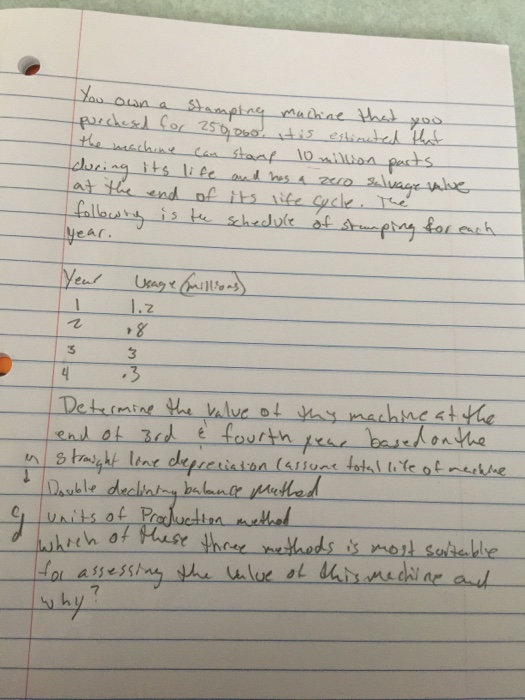 You own a stamping machine that you
purchesd for 250,000. it is estimated that
the machine can stamp 10 million parts
during its life and has a zero salvage value
at the end of its life cycle. The
following is the schedule of stamping for each
year.
Year Usage (millions)
1 1.2
2 .8
3 3
4 .3
Determine the value of this machine at the
end of 3rd & fourth year based on the
straight line depreciation (assume total life of machine
Double declining balance method
units of Production method
which of these three methods is most suitable
for assessing the value of this machine and
why?